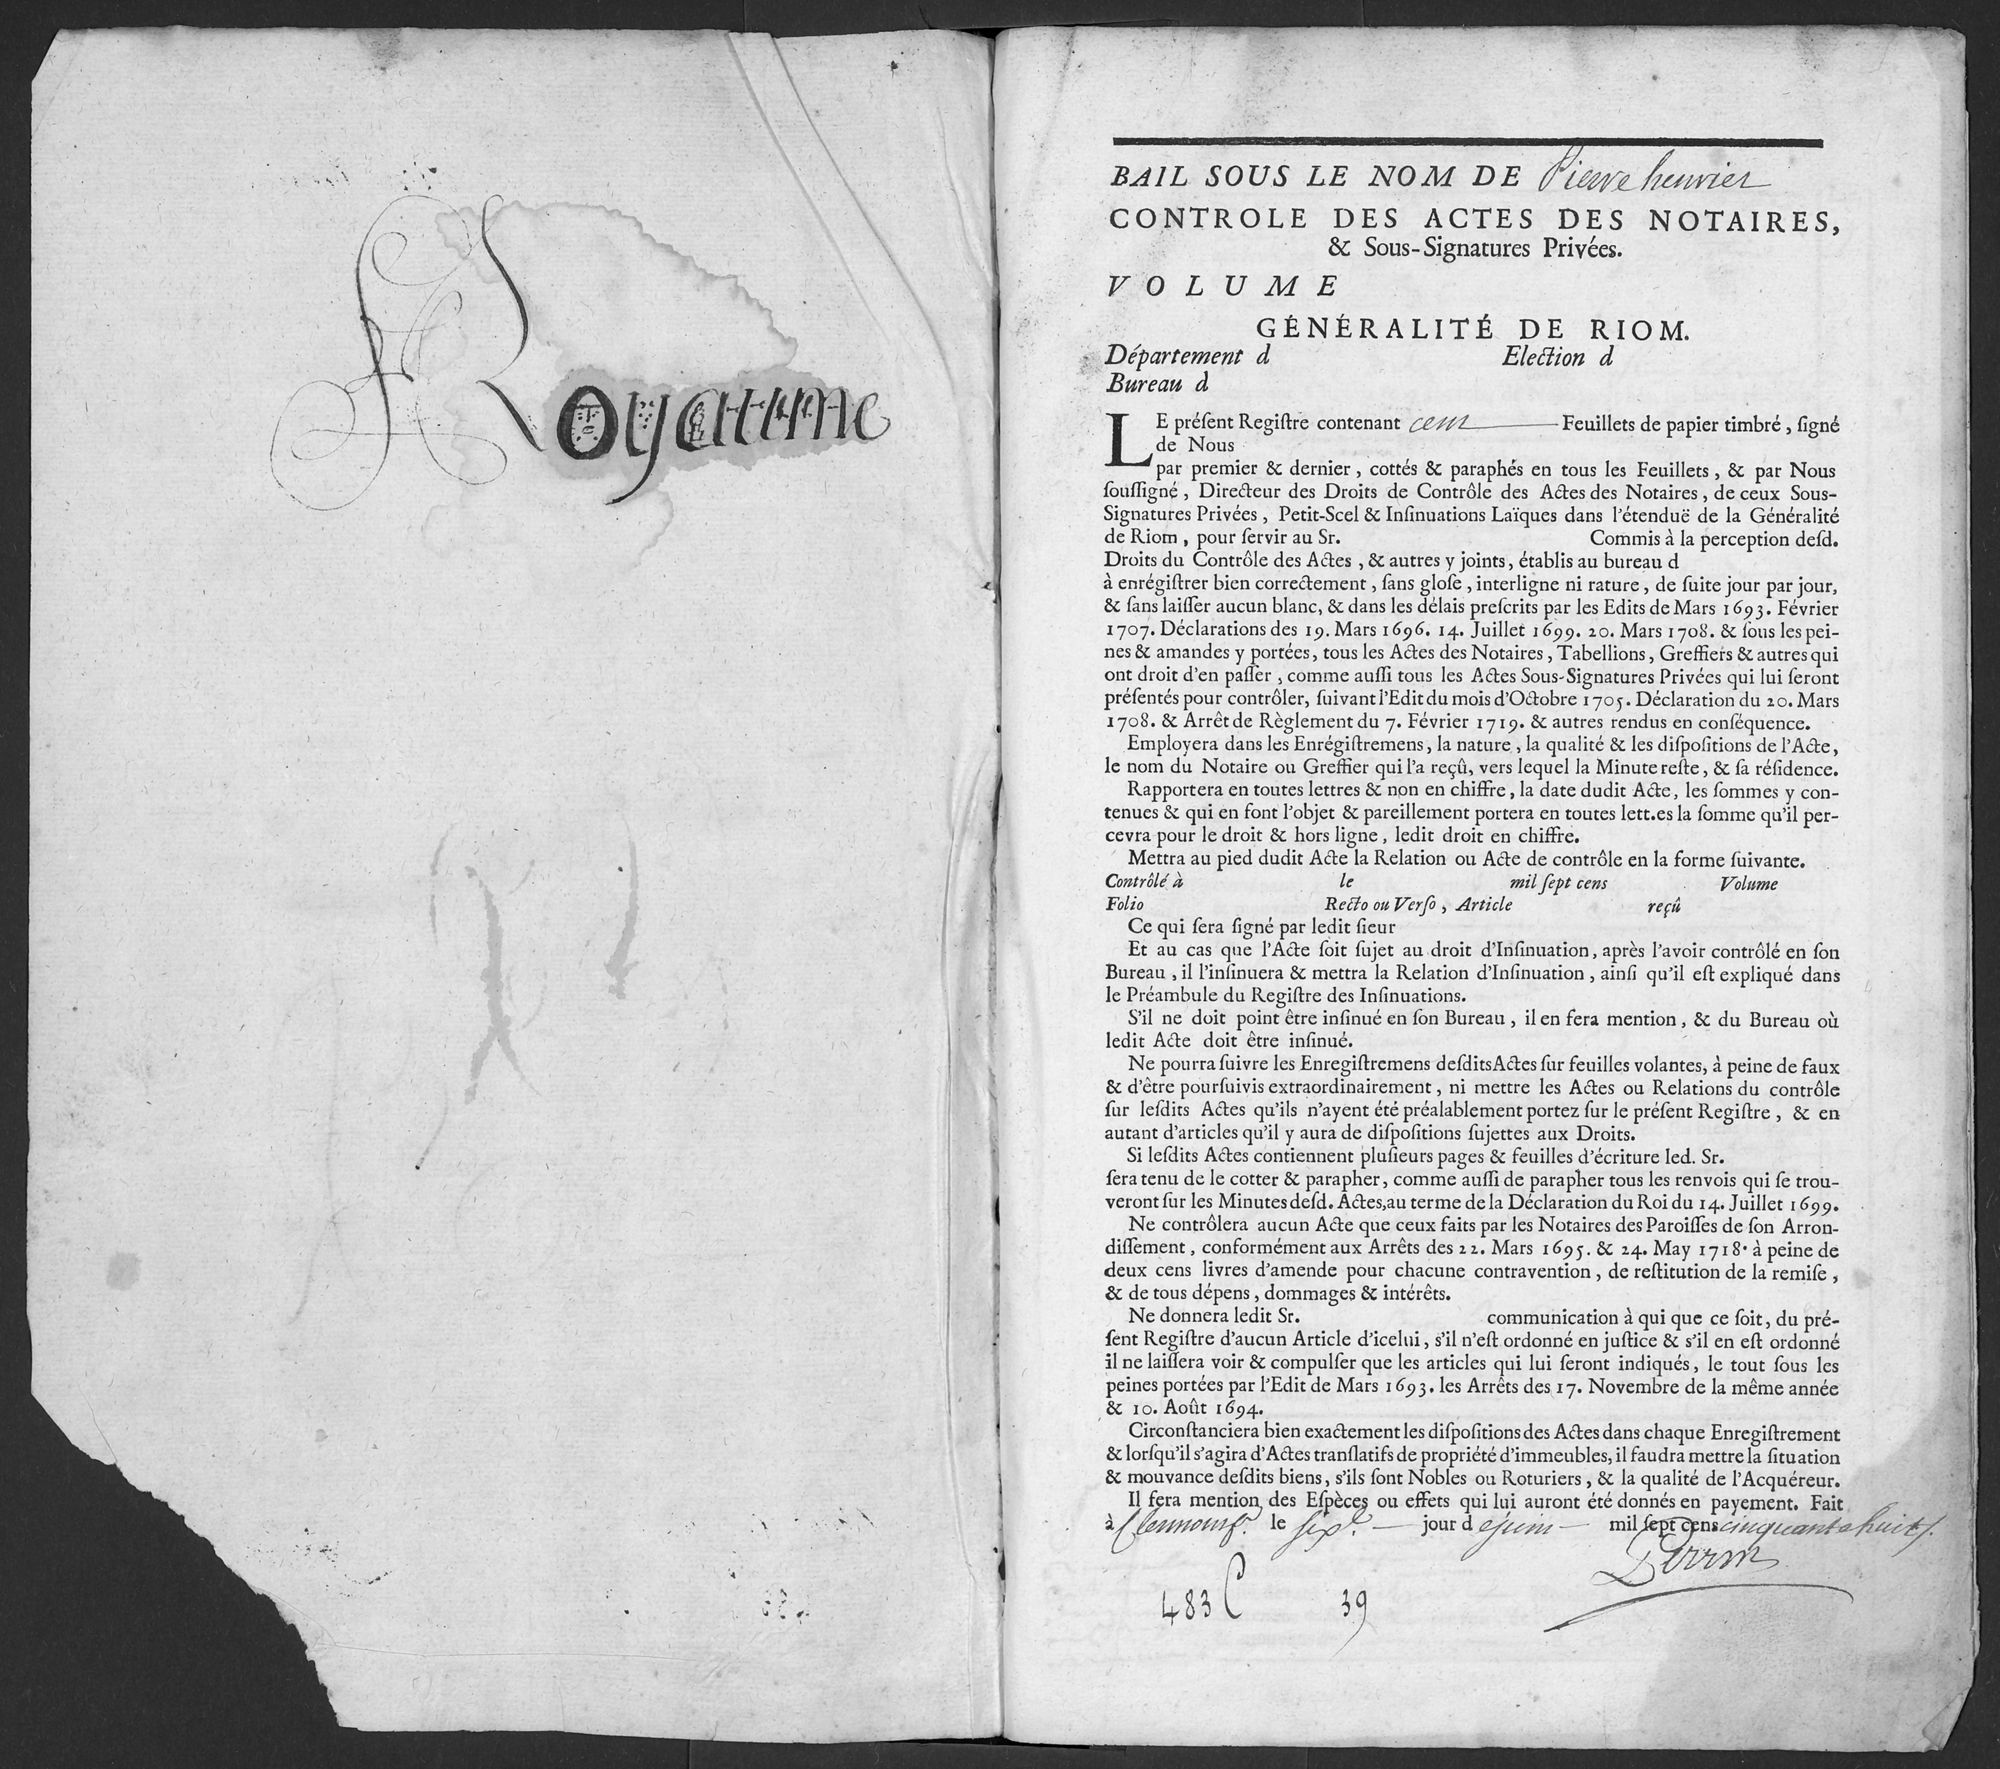 Royaume
BAIL SOUS LE NOM DE Pierre henriet
CONTROLE DES ACTES DES NOTAIRES,
& Sous-Signatures Privées.
VOLUME
GÉNÉRALITÉ DE RIOM.
Département d Election d
Bureau d
LE préſent Regiſtre contenant cent Feuillets de papier timbré, ſigné
de Nous
par premier & dernier, cottés & paraphés en tous les Feuillets, & par Nous
ſouſſigné, Directeur des Droits de Contrôle des Actes des Notaires, de ceux Sous-
Signatures Privées, Petit-Scel & Inſinuations Laïques dans l'étenduë de la Généralité
de Riom, pour ſervir au Sr. Commis à la perception deſd.
Droits du Contrôle des Actes, & autres y joints, établis au bureau d
à enrégiſtrer bien correctement, ſans gloſe, interligne ni rature, de ſuite jour par jour,
& ſans laiſſer aucun blanc, & dans les délais preſcrits par les Edits de Mars 1693. Février
1707. Déclarations des 19. Mars 1696. 14. Juillet 1699. 20. Mars 1708. & ſous les pei-
nes & amandes y portées, tous les Actes des Notaires, Tabellions, Greffiers & autres qui
ont droit d'en paſſer, comme auſſi tous les Actes Sous-Signatures Privées qui lui ſeront
préſentés pour contrôler, ſuivant l'Edit du mois d'Octobre 1705. Déclaration du 20. Mars
1708. & Arrêt de Règlement du 7. Février 1719. & autres rendus en conſéquence.
Employera dans les Enrégiſtremens, la nature, la qualité & les diſpoſitions de l'Acte,
le nom du Notaire ou Greffier qui l'a reçû, vers lequel la Minute reſte, & ſa réſidence.
Rapportera en toutes lettres & non en chiffre, la date dudit Acte, les ſommes y con-
tenues & qui en font l'objet & pareillement portera en toutes lett.es la ſomme qu'il per-
cevra pour le droit & hors ligne, ledit droit en chiffre.
Mettra au pied dudit Acte la Relation ou Acte de contrôle en la forme ſuivante.
Contrôlé à le mil ſept cens Volume
Folio Recto ou Verſo, Article reçû
Ce qui ſera ſigné par ledit ſieur
Et au cas que l'Acte ſoit ſujet au droit d'Inſinuation, après l'avoir contrôlé en ſon
Bureau, il l'inſinuera & mettra la Relation d'Inſinuation, ainſi qu'il eſt expliqué dans
le Préambule du Regiſtre des Inſinuations.
S'il ne doit point être inſinué en ſon Bureau, il en fera mention, & du Bureau où
ledit Acte doit être inſinué.
Ne pourra ſuivre les Enregiſtremens deſdits Actes ſur feuilles volantes, à peine de faux
& d'être pourſuivis extraordinairement, ni mettre les Actes ou Relations du contrôle
ſur leſdits Actes qu'ils n'ayent été préalablement portez ſur le préſent Regiſtre, & en
autant d'articles qu'il y aura de diſpoſitions ſujettes aux Droits.
Si leſdits Actes contiennent pluſieurs pages & feuilles d'écriture led. Sr.
ſera tenu de le cotter & parapher, comme auſſi de parapher tous les renvois qui ſe trou-
veront ſur les Minutes deſd. Actes, au terme de la Déclaration du Roi du 14. Juillet 1699.
Ne contrôlera aucun Acte que ceux faits par les Notaires des Paroiſſes de ſon Arron-
diſſement, conformément aux Arrêts des 22. Mars 1695. & 24. May 1718. à peine de
deux cens livres d'amende pour chacune contravention, de reſtitution de la remiſe,
& de tous dépens, dommages & intérêts.
Ne donnera ledit Sr. communication à qui que ce ſoit, du pré-
ſent Regiſtre d'aucun Article d'icelui, s'il n'eſt ordonné en juſtice & s'il en eſt ordonné
il ne laiſſera voir & compulſer que les articles qui lui ſeront indiqués, le tout ſous les
peines portées par l'Edit de Mars 1693. les Arrêts des 17. Novembre de la même année
& 10. Août 1694.
Circonſtanciera bien exactement les diſpoſitions des Actes dans chaque Enregiſtrement
& lorſqu'il s'agira d'Actes tranſlatifs de propriété d'immeubles, il faudra mettre la ſituation
& mouvance deſdits biens, s'ils ſont Nobles ou Roturiers, & la qualité de l'Acquéreur.
Il fera mention des Eſpèces ou effets qui lui auront été donnés en payement. Fait
à le jour d ejuin mil ſept cens cinquante huit
Perrin
483 C 39